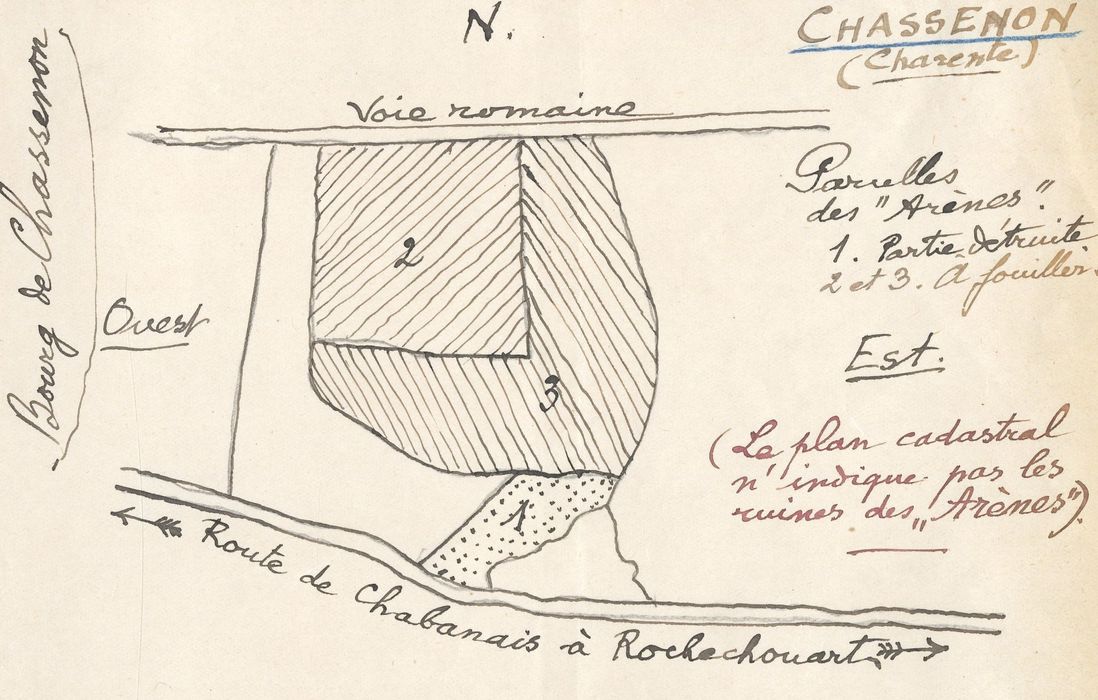 N.
CHASSENON
(Charente)
Voie romaine
Bourg de Chassenon
Parcelles
des "Arènes".
1. Partie détruite
2 et 3. A fouiller.
2
Ouest
Est.
3
(Le plan cadastral
n'indique pas les
ruines des „Arènes").
1
Route de Chabanais à Rochechouart